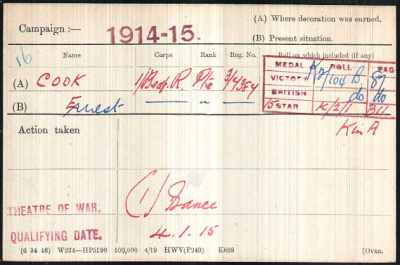 (A) Where decoration was earned.
Campaign :— 1914-15.
(B) Present situation.
16
Name Corps Rank Reg. No. Roll on which included (if any)
MEDAL ROLL PAGE
(A) COOK 1/Bedf.R. Pte 3/4384 VICTORY K/1/104 B. 87
(B) Ernest — " — BRITISH do do
15 STAR K/2/1 311
Action taken K in A
THEATRE OF WAR. (1) France
QUALIFYING DATE. 4.1.15
(6 34 46) W234—HP5590 500,000 4/19 HWV(P240) K608 [OVER.